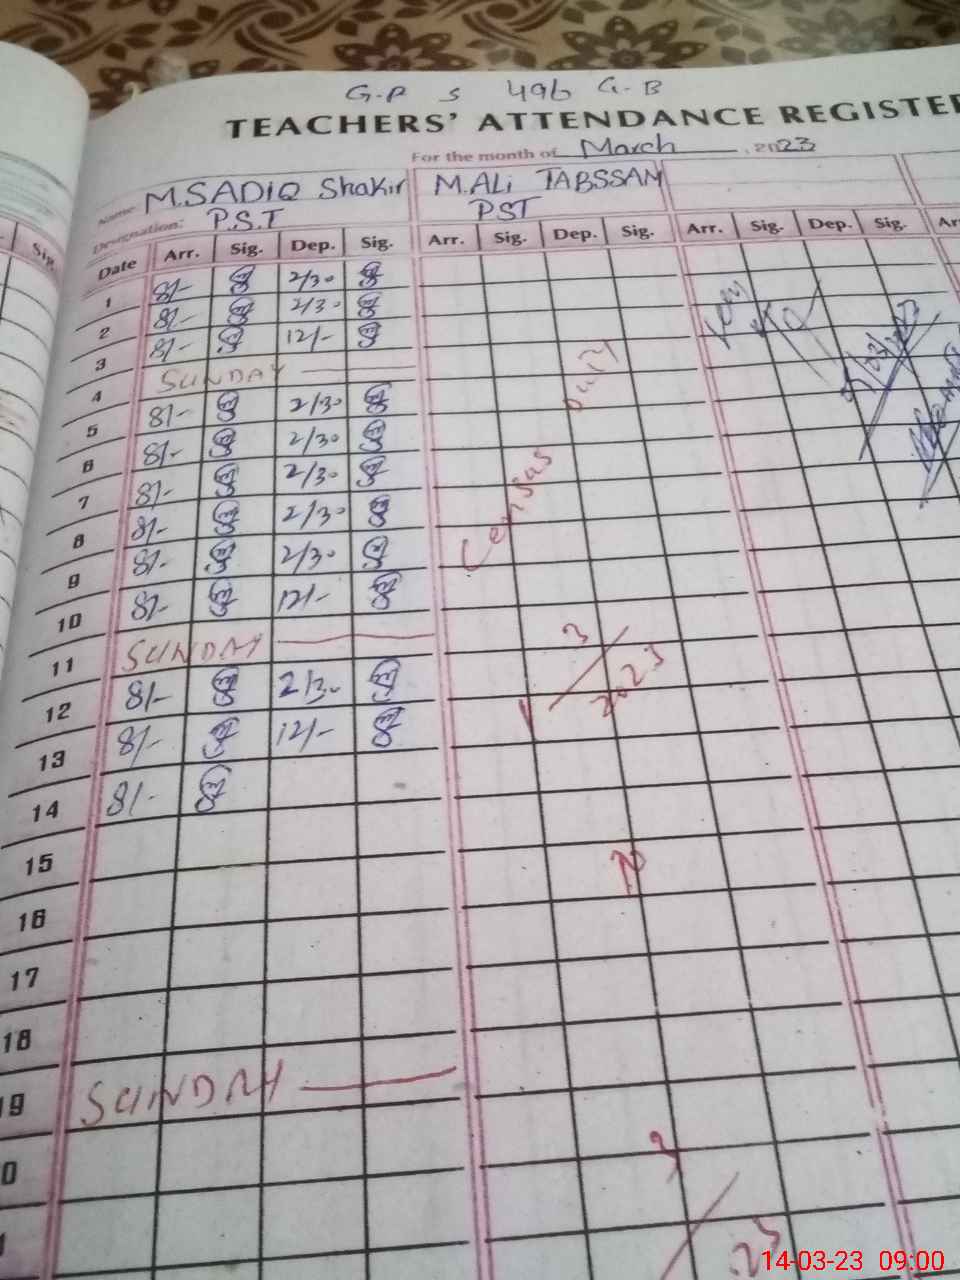 G.P S 496 G.B
TEACHERS' ATTENDANCE REGISTE
For the month of March , 2023
Name: M.SADIQ Shakir M.ALi TABSSAM
Designation: P.S.T PST
Sig.
Date Arr. Sig. Dep. Sig. Arr. Sig. Dep. Sig. Arr. Sig. Dep. Sig. Ar
1 8/- 2/30
2 8/- 2/30
3 8/- 12/-
4 SUNDAY
5 8/- 2/30
6 8/- 2/30
7 8/- 2/30
8 8/- 2/30
9 8/- 2/30
10 8/- 12/-
11 SUNDAY
12 8/- 2/30
13 8/- 12/-
14 8/-
15
16
17
18
19 SUNDAY
0
Censas Duity
1 3/2023
14-03-23 09:00